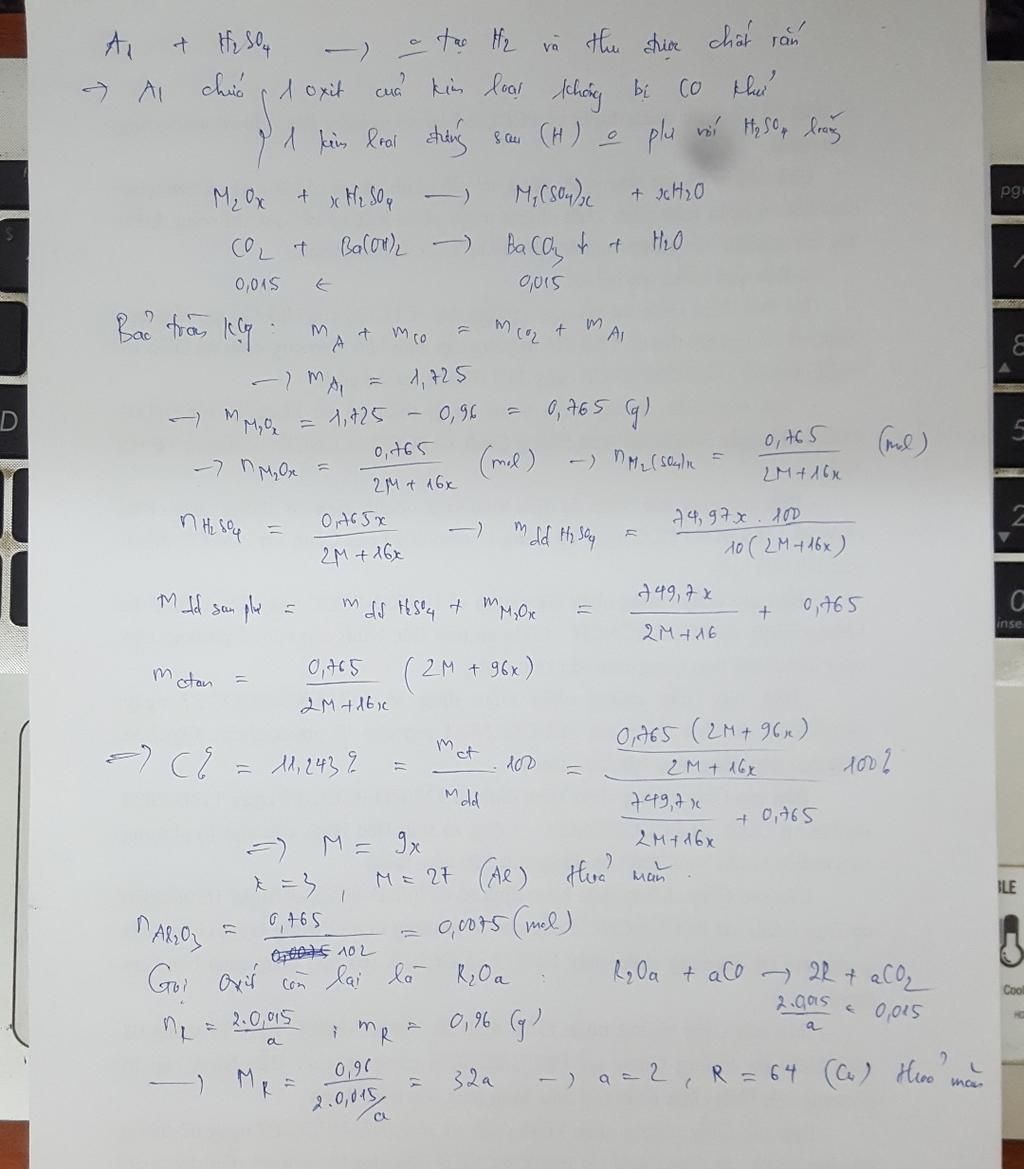 A₁ + H₂SO₄ → o tạo H₂ và thu được chất rắn
→ A₁ chứa { 1 oxit của kim loại không bị CO khử
1 kim loại đứng sau (H) o pứ với H₂SO₄ loãng
M₂Oₓ + xH₂SO₄ → M₂(SO₄)ₓ + xH₂O
CO₂ + Ba(OH)₂ → BaCO₃↓ + H₂O
0,015 ← 0,015
Bảo toàn KLg : m_A + m_CO = m_CO₂ + m_A₁
→ m_A₁ = 1,725
→ m_M₂Oₓ = 1,725 - 0,96 = 0,765 (g)
→ n_M₂Oₓ = 0,765/(2M+16x) (mol) → n_M₂(SO₄)ₓ = 0,765/(2M+16x) (mol)
n_H₂SO₄ = 0,765x/(2M+16x) → m_dd H₂SO₄ = 74,97x . 100/10(2M+16x)
m_dd sau pứ = m_dd H₂SO₄ + m_M₂Oₓ = 749,7x/(2M+16) + 0,765
m_ctan = 0,765/(2M+16x) (2M + 96x)
⇒ C% = 11,243% = m_ct/m_dd . 100 = (0,765 (2M + 96x)/(2M+16x))/(749,7x/(2M+16x) + 0,765) . 100%
⇒ M = 9x
x = 3, M = 27 (Al) thoả mãn.
n_Al₂O₃ = 0,765/102 = 0,0075 (mol)
Gọi oxit còn lại là R₂Oₐ : R₂Oₐ + aCO → 2R + aCO₂
2.0,015/a ← 0,015
n_R = 2.0,015/a ; m_R = 0,96 (g)
→ M_R = 0,96/(2.0,015/a) = 32a → a = 2, R = 64 (Cu) thoả mãn
pg
8
5
2
0
inse
D
$
BLE
Cool